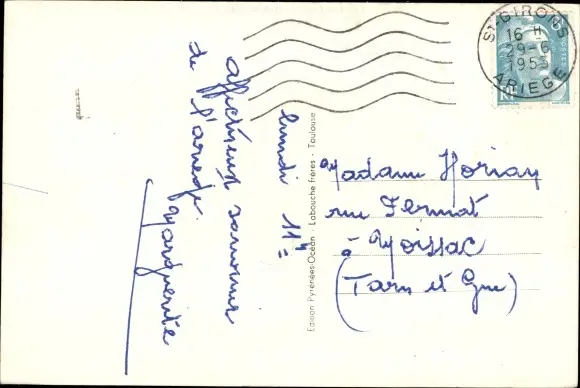 lundi 11h
affectueux souvenir
de l'ariège
Marguerite
Edition Pyrénées-Océan - Labouche Frères - Toulouse
St-GIRONS
16 H
29-6
1953
ARIEGE
Madame Moriay
rue Fermat
à Moissac
(Tarn et Gne)